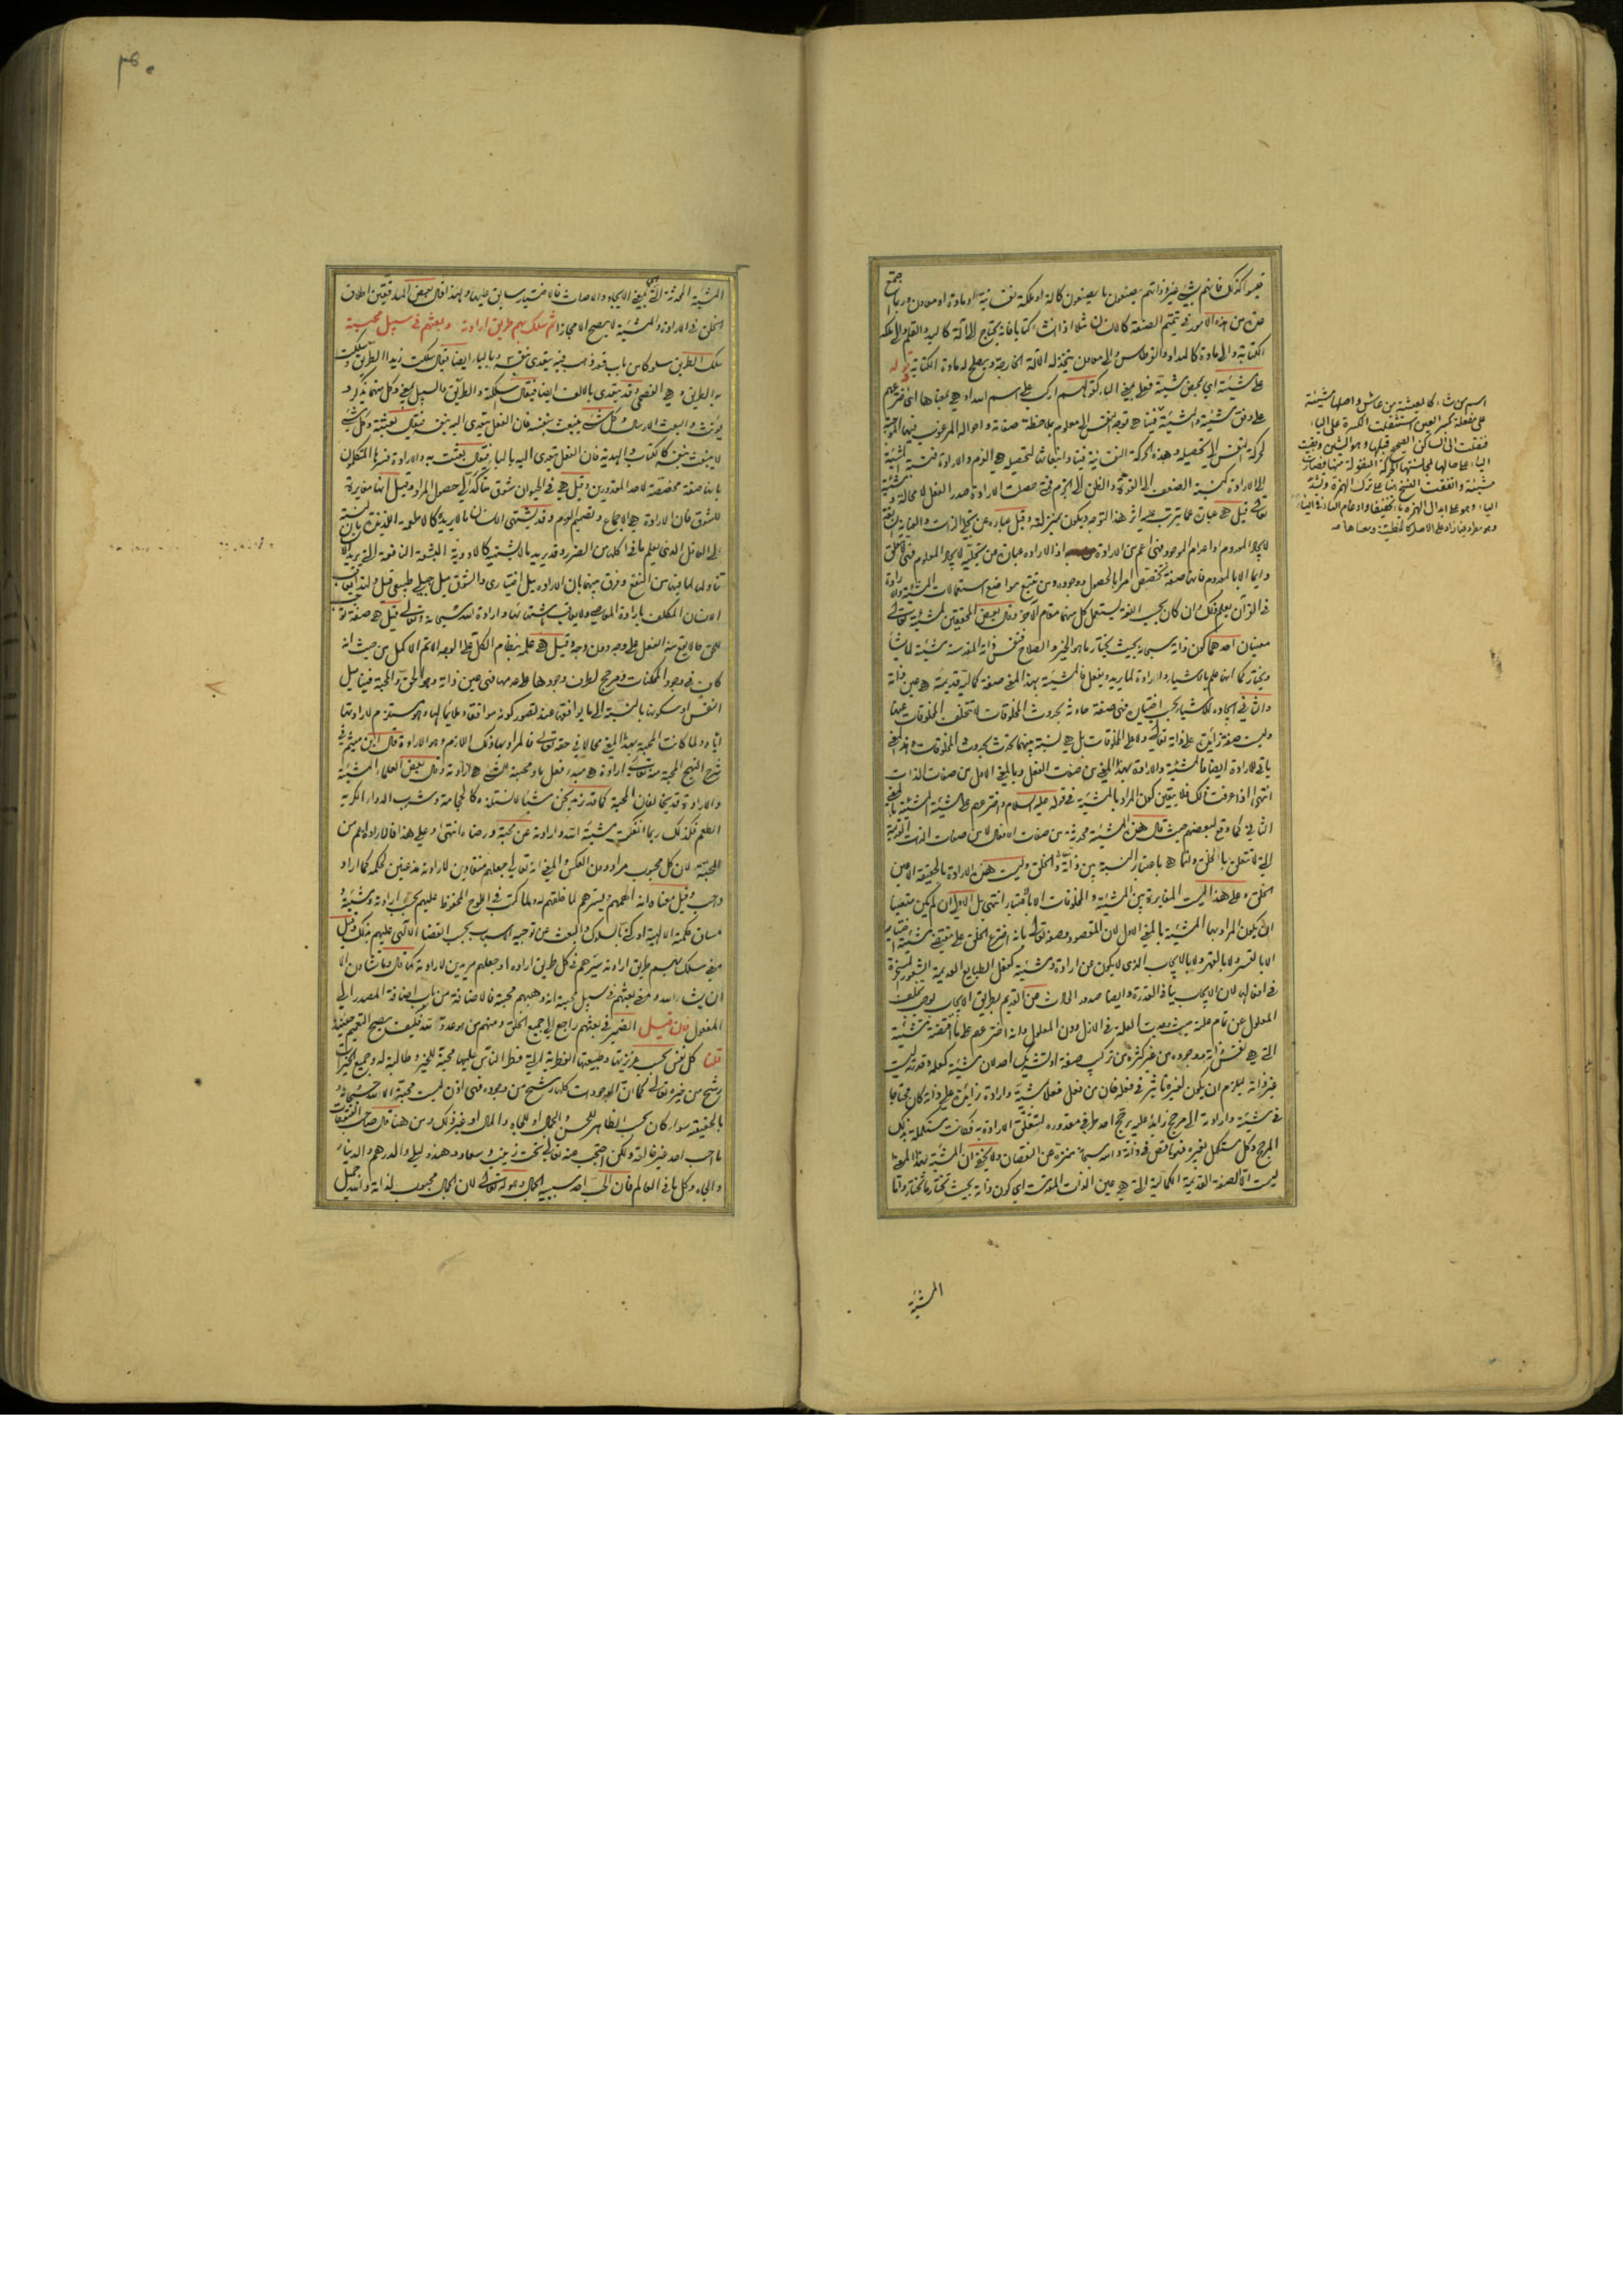 فليسوا كذلك فانهم بشيء غير ذواتهم يصنعون ما يصنعون كآلة او ملكة نفسانية او مادة او معاون وربما يجتمع
من هذه الامور في تتميم الصنعة كالانسان مثلا اذا انشأ كتابا فانه يحتاج الى آلة كاليد والقلم والى ملكة
الكتابة والى مادة كالمداد والقرطاس والى معاون يتخذ له الآلة الخارجة ويصلح له مادة الكتابة
على مشيئته اي بمحض مشيته فعلى بمعنى الباء كقولهم اركب على اسم الله او هي بمعناها اي اخترعهم
على وفق مشيته والمشيئة فينا هي توجه النفس الى معلوم بملاحظة صفاته واحواله المرغوب فيها الموجبة
لحركة النفس الى تحصيله وهذه الحركة النفسانية فينا وانبعاثها لتحصيله هي العزم والارادة فنسبة المشيئة
الى الارادة كنسبة الضعف الى القوة والظن الى الجزم فمتى حصلت الارادة صدر الفعل لا محالة
تعالى قيل هي عبارة عما يترتب عليه اثر هذا التوجه ويكون بمنزلته وقيل عبارة عن تجلي الذات والعناية السابقة
لايجاد المعدوم او اعدام الموجود فهي اعم من الارادة اذ الارادة عبارة عن تجليه لايجاد المعدوم فهي لا تتعلق
دايما الا بالمعدوم فانها صفة تخصص امرا بالحصول ووجوده ومن تتبع مواضع استعمالات المشيئة والارادة
في القرآن يعلم ذلك وان كان بحسب اللغة يستعمل كل منهما مقام الآخر وقال بعض المحققين لمشيئة الله تعالى
معنيان احدهما كون ذاته سبحانه بحيث يختار ما هو الخير والصلاح فنفس ذاته المقدسة مشيئة لما يشاء
ويختار كما انها علم بالاشياء وارادة لما يريد ويفعل فالمشيئة بهذا المعنى صفة كمالية قديمة هي عين ذاته
والثاني ايجاده للاشياء بحسب اختياره فهي صفة حادثة بحدوث المخلوقات لا تتخلف المخلوقات عنها
وليست صفة زايدة على ذاته تعالى ولا على المخلوقات بل هي نسبة بينهما تحدث بحدوث المخلوقات وهذا المعنى
ياتي للارادة ايضا فالمشيئة والارادة بهذا المعنى من صفات الفعل وبالمعنى الاول من صفات الذات
انتهى اذا عرفت ذلك فلا يتعين كون المراد بالمشيئة في قوله عليه السلام واخترعهم على مشيئته المشيئة بالمعنى
الثاني كما وقع لبعضهم حيث قال هذه المشيئة محدثة من صفات الافعال لا من صفات الذات القديمة
التي لا تتعلق بالخلق وانما هي باعتبار النسبة بين ذاته تعالى والخلق وليست هذه الارادة بالحقيقة الا عين
الخلق وعلى هذا ليست المغايرة بين المشيئة والمخلوقات الا بالاعتبار انتهى بل الاولى ان لم يكن متعينا
ان يكون المراد بها المشيئة بالمعنى الاول لان المقصود وصفه تعالى بانه اخترع الخلق على مقتضى مشيئته واختياره
لا بالقسر ولا بالقهر ولا بالايجاب الذي لا يكون عن ارادة ومشيئة كفعل الطبايع العديمة الشعور المسخرة
في افعالها لان الايجاب ينافي القدرة وايضا صدور الحادث من القديم بطريق الايجاب يوجب تخلف
المعلول عن تمام علته حيث وجدت العلة في الازل دون المعلول وانه اخترعهم على ما اقتضته مشيئته
التي هي نفس ذاته موجودة من غير كثرة ولا تركيب صفة او تشريك احد لان مشيئته كعلمه وقدرته ليست
غير ذاته ليلزم ان يكون لغيره تاثير في فعله فان من فعل فعلا بمشيئة وارادة زايدة على ذاته كان محتاجا
في مشيئته وارادته الى مرجح زايد عليه يرجح احد طرفي مقدوره لتتعلق الارادة به فكانت مستكملة بذلك
المرجح وكل مستكمل بغيره فهو ناقص في ذاته والله سبحانه منزه عن النقصان ولا يخفى ان المشيئة بهذا المعنى
ليست الا الصفة القديمة الكمالية التي هي عين الذات المقدسة اي كون ذاته بحيث تختار ما تختار واما
المشيئة
اسم من شاء كالمعيشة من عاش واصلها مشيئة
على مفعلة بكسر العين استثقلت الكسرة على الياء
فنقلت الى الساكن الصحيح قبلها وهو الشين وبقيت
الياء على حالها لمجانستها الحركة المنقولة منها فصارت
مشيئة واتفقت النسخ هنا على ترك الهمزة وتشديد
الياء وهو على ابدال الهمزة ياء تخفيفا وادغام الياء في الياء
المشيئة المحدثة التي هي بمعنى الايجاد والاحداث فالاختيار سابق عليها ولهذا قال بعض المدققين اطلاق
الخلق في الارادة والمشيئة لا يصح الا مجازا ثم سلك بهم طريق ارادته وبعثهم في سبيل محبته
سلك الطريق سلوكا من باب قعد ذهب فيه يتعدى بنفسه وبالباء ايضا فيقال سلكت زيدا الطريق وسلكت
به الطريق وهي الفصحى وقد يتعدى بالالف ايضا فيقال اسلكته والطريق والسبيل بمعنى وكل منهما يذكر و
يؤنث والبعث الارسال وكل شيء ينبعث بنفسه فان الفعل يتعدى اليه بنفسه فيقال بعثته وكل شيء
لا ينبعث بنفسه كالكتاب والهدية فان الفعل يتعدى اليه بالباء فيقال بعثت به والارادة فسرها المتكلمون
بانها صفة مخصصة لاحد المقدورين وقيل هي في الحيوان شوق متأكد الى حصول المراد وقيل انها مغايرة
للشوق فان الارادة هي الاجماع وتصميم العزم وقد يشتهي الانسان ما لا يريده كالاطعمة اللذيذة بالنسبة
الى العاقل الذي يعلم ما في اكلها من الضرر وقد يريد ما لا يشتهيه كالادوية البشعة النافعة التي يريد الانسان
تناولها لما فيها من النفع وفرق بينهما بان الارادة ميل اختياري والشوق ميل جبلي طبيعي قيل ولهذا يعاقب
الانسان المكلف بارادة المعاصي ولا يعاقب باشتهائها وارادة الله سبحانه وتعالى قيل هي صفة توجب
للحي حالا يقع منه الفعل على وجه دون وجه وقيل هي علمه بنظام الكل على الوجه الاتم الاكمل من حيث انه
كاف في وجود الممكنات ومرجح لطرف وجودها على عدمها فهي عين ذاته وهو الحق والمحبة فينا ميل
النفس او سكونها بالنسبة الى ما يوافقها عند تصور كونه موافقا وملايما لها وهو مستلزم لارادتها
اياه ولما كانت المحبة بهذا المعنى محالا في حقه تعالى فالمراد بها ذلك اللازم وهو الارادة قال ابن ميثم في
شرح النهج المحبة منه تعالى ارادة هي مبدء فعل ما ومحبة الشيء هي ارادته وقال بعض العلماء المشيئة
والارادة قد يخالفان المحبة كما قد نريد نحن شيئا لا نستلذه كالحجامة وشرب الدواء الكريه
الطعم فكذلك ربما انفكت مشيئة الله وارادته عن محبته ورضاه انتهى وعلى هذا فالارادة اعم من
المحبة لان كل محبوب مراد دون العكس والمعنى انه تعالى جعلهم منقادين لارادته مذعنين لحكمه كما اراد
واحب وقيل معناه انه الهمهم ويسرهم لما خلقهم له ولما كتب في اللوح المحفوظ عليهم بحسب ارادته ومشيئته
مساق حكمته الالهية او كنى بالسلوك والبعث عن توجيه الاسباب بحسب القضاء الالهي عليهم بذلك وقيل
معنى سلك بهم طريق ارادته سيرهم في كل طريق اراده او جعلهم مريدين لارادته كما قال وما تشاؤن الا
ان يشاء الله ومعنى بعثهم في سبيل محبته انه وهبهم محبته فالاضافة من باب اضافة المصدر الى
المفعول فان قيل الضمير في بعثهم راجع الى جميع الخلق ومنهم من هو عدو لله فكيف يصح التعميم حينئذ
قلنا كل نفس بحسب غريزتها وطبيعتها الفطرية التي فطر الناس عليها محبة للخير وطالبة له وجميع الخيرات
رشح من خيره تعالى كما ان الموجودات كلها رشح من وجوده فهي اذن ليست محبة الا الله سبحانه و
بالحقيقة سواء كان بحسب الظاهر للحسن والجمال او للجاه والمال او غير ذلك ومن هنا قال صاحب الفتوحات
ما احب احد غير خالقه ولكن احتجب عنه تعالى تحت زينب وسعاد وهند وليلى والدرهم والدينار
والجاه وكل ما في العالم فان الحب احد سببيه الجمال وهو له تعالى لان الجمال محبوب لذاته والله جميل